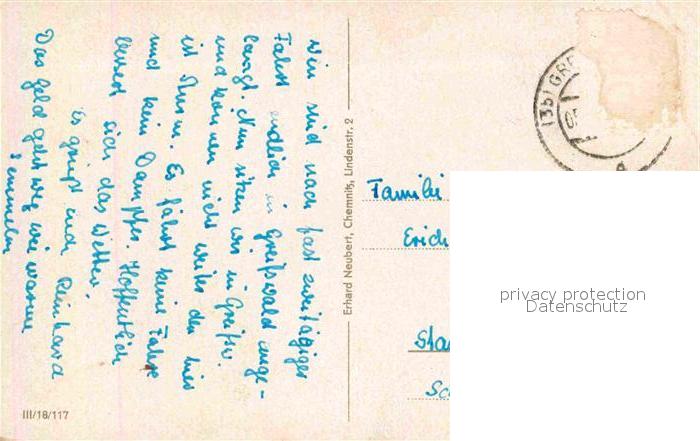 Wir sind nach fast zweitägiger
Fahrt endlich in Greifswald ange-
langt. Nun sitzen wir in Greifsw.
und können nicht weiter da hier
ist Sturm. Es fährt keine Fähre
und kein Dampfer. Hoffentlich
bessert sich das Wetter.
Es grüßt euch Reinhard
Das Geld geht weg wie warme
Semmeln
III/18/117
Erhard Neubert, Chemnitz, Lindenstr. 2
(3b) GRE
Familie
Erich
Sta
Sc
privacy protection
Datenschutz